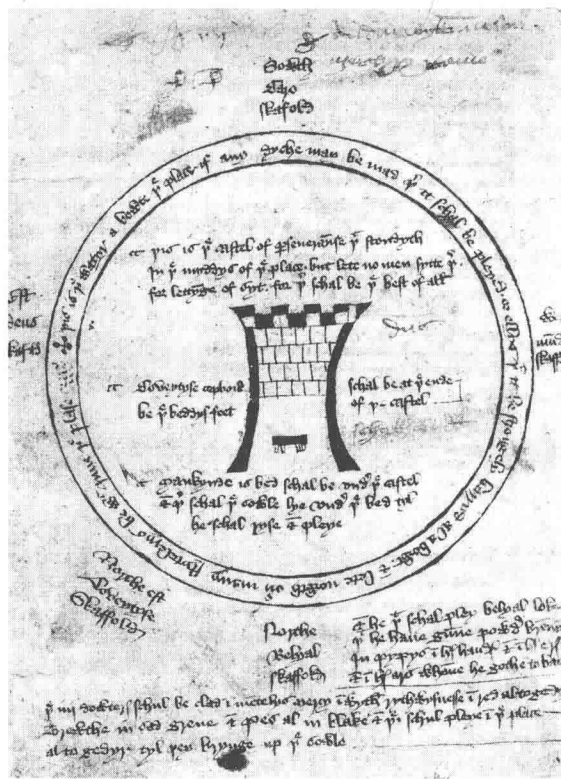 Sowth
Caro
skafold
þis is þe watyr a bowte þe place if any dyche may be mad þer it schal be pleyed or ellys þat it be strongely barryd al a bowt & lete nowth ouer many stytelerys be wt Inne þe plase
þis is þe castel of perseueraunse þat stondyth
In þe myddys of þe place but lete no men sytte þer
for lettynge of syt for þer schal be þe best of all
Est
deus
skafold
skaffold
Coveytyse copbord schal be at þe ende
be þe beddys feet of þe castel
Mankynde is bed schal be vndyr þe castel
& þer schal þe sowle lye vndyr þe bed tyl
he schal ryse & pleye
Northe est
Coveytyse
skaffold
Northe
Belyal
skaffold
& he þat schal pley belyal loke
þat he haue gunne powdyr brenn
In pypys in his handis & in his ers
& in his ars whanne he gothe to bat
þe iiij dowters schul be clad in mentelys Mercy in wyth rythwysnesse in red altogedyr
Trewthe in sad grene & Pes al in blake & þei schul pleye in þe place
al to gedyr tyl þey brynge up þe sowle